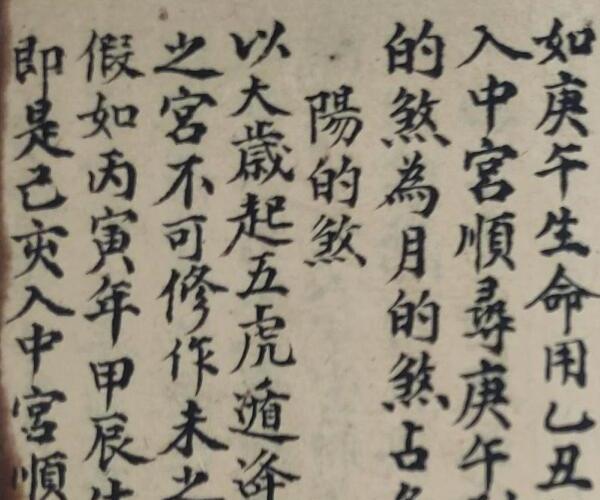 如庚午生命用乙丑
入中宮順尋庚午
的煞為月的煞占
陽的煞
以大歲起五虎遁
之宮不可修作未之
假如丙寅年甲辰生
即是己亥入中宮順